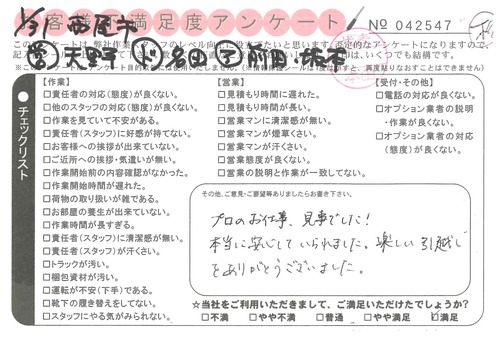 1/31 西尾市
お客様満足度アンケート
№ 042547
営 天野 ド 名田 ア 前田・坂本
チェックリスト
【作業】
□責任者の対応(態度)が良くない。
□他のスタッフの対応(態度)が良くない。
□作業を見ていて不安がある。
□責任者(スタッフ)に好感が持てない。
□お客様への挨拶が出来ていない。
□ご近所への挨拶・気遣いが無い。
□作業開始前の内容確認がなかった。
□作業開始時間が遅れた。
□荷物の取り扱いが雑である。
□お部屋の養生が出来ていない。
□作業時間が長すぎる。
□責任者(スタッフ)に清潔感が無い。
□責任者(スタッフ)が汗くさい。
□トラックが汚い。
□梱包資材が汚い。
□運転が不安(下手)である。
□靴下の履き替えをしてない。
□スタッフにやる気がみられない。
【営業】
□見積もり時間に遅れた。
□見積もり時間が長い。
□営業マンに清潔感が無い。
□営業マンが煙草くさい。
□営業マンが汗くさい。
□営業態度が良くない。
□営業の説明と作業が一致してない。
【受付・その他】
□電話の対応が良くない。
□オプション業者の説明
・作業が良くない。
□オプション業者の対応
(態度)が良くない。
その他、ご意見・ご要望等ありましたらお書き下さい。
プロのお仕事、見事でした!
本当に安心していられました。楽しい引越し
をありがとうございました。
☆当社をご利用いただきまして、ご満足いただけたでしょうか?
□不満 □やや不満 □普通 □やや満足 □満足